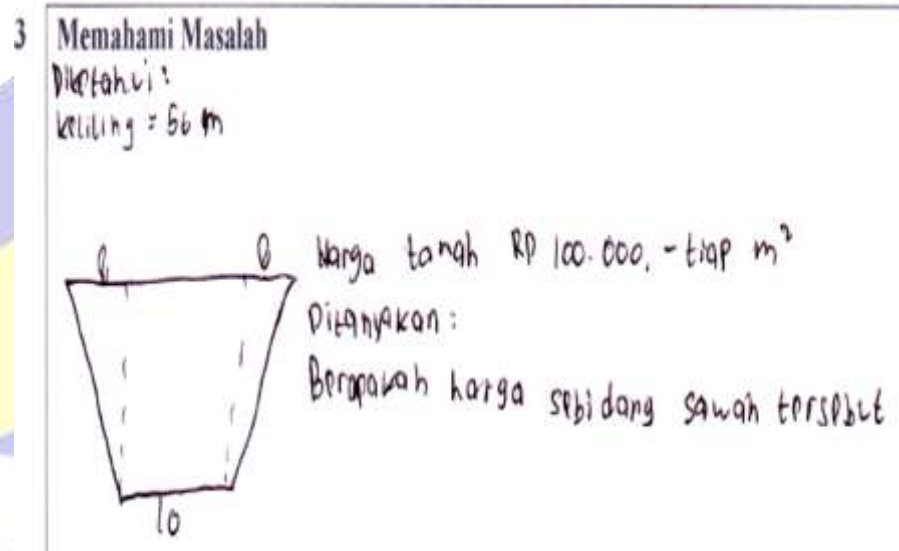 3 Memahami Masalah
Diketahui :
keliling = 56 m
8 8
Harga tanah RP 100.000,- tiap m²
Ditanyakan :
Berapakah harga sebidang sawah tersebut
10